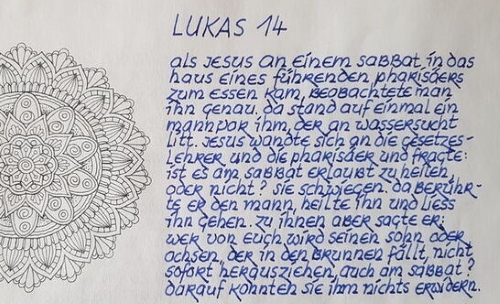 LUKAS 14
als Jesus an einem Sabbat in das
haus eines führenden pharisäers
zum essen kam, beobachtete man
ihn genau. da stand auf einmal ein
mann vor ihm, der an wassersucht
litt. Jesus wandte sich an die gesetzes-
lehrer und die pharisäer und fragte:
ist es am sabbat erlaubt zu heilen
oder nicht? sie schwiegen. da berühr-
te er den mann, heilte ihn und liess
ihn gehen. zu ihnen aber sagte er:
wer von euch wird seinen sohn oder
ochsen, der in den brunnen fällt, nicht
sofort herausziehen, auch am sabbat?
darauf konnten sie ihm nichts erwidern.